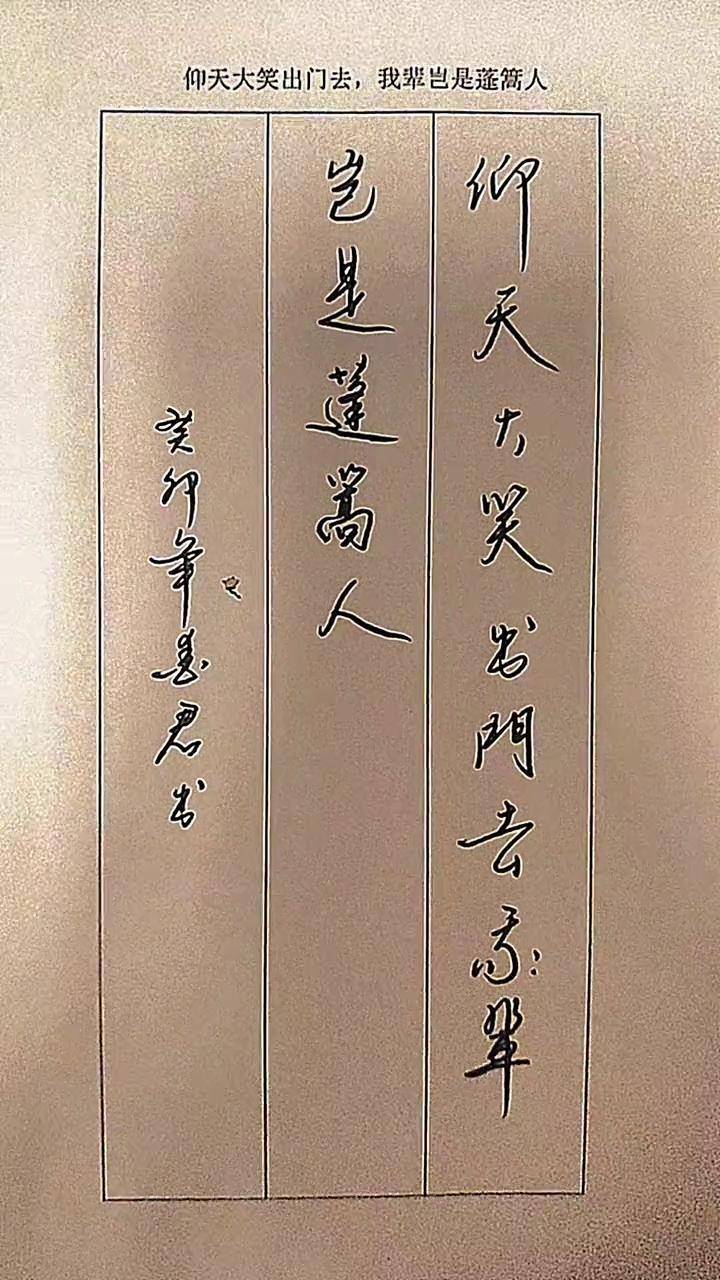 仰天大笑出门去，我辈岂是蓬蒿人
仰天大笑出門去我輩
岂是蓬蒿人
癸卯年君书